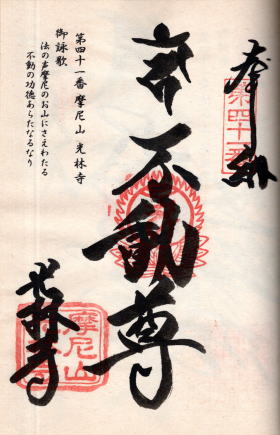 奉納
第四十一番
不動尊
光林寺
摩尼山
第四十一番 摩尼山 光林寺
御詠歌
法の声摩尼のお山にさえわたる
不動の功徳あらたなるなり